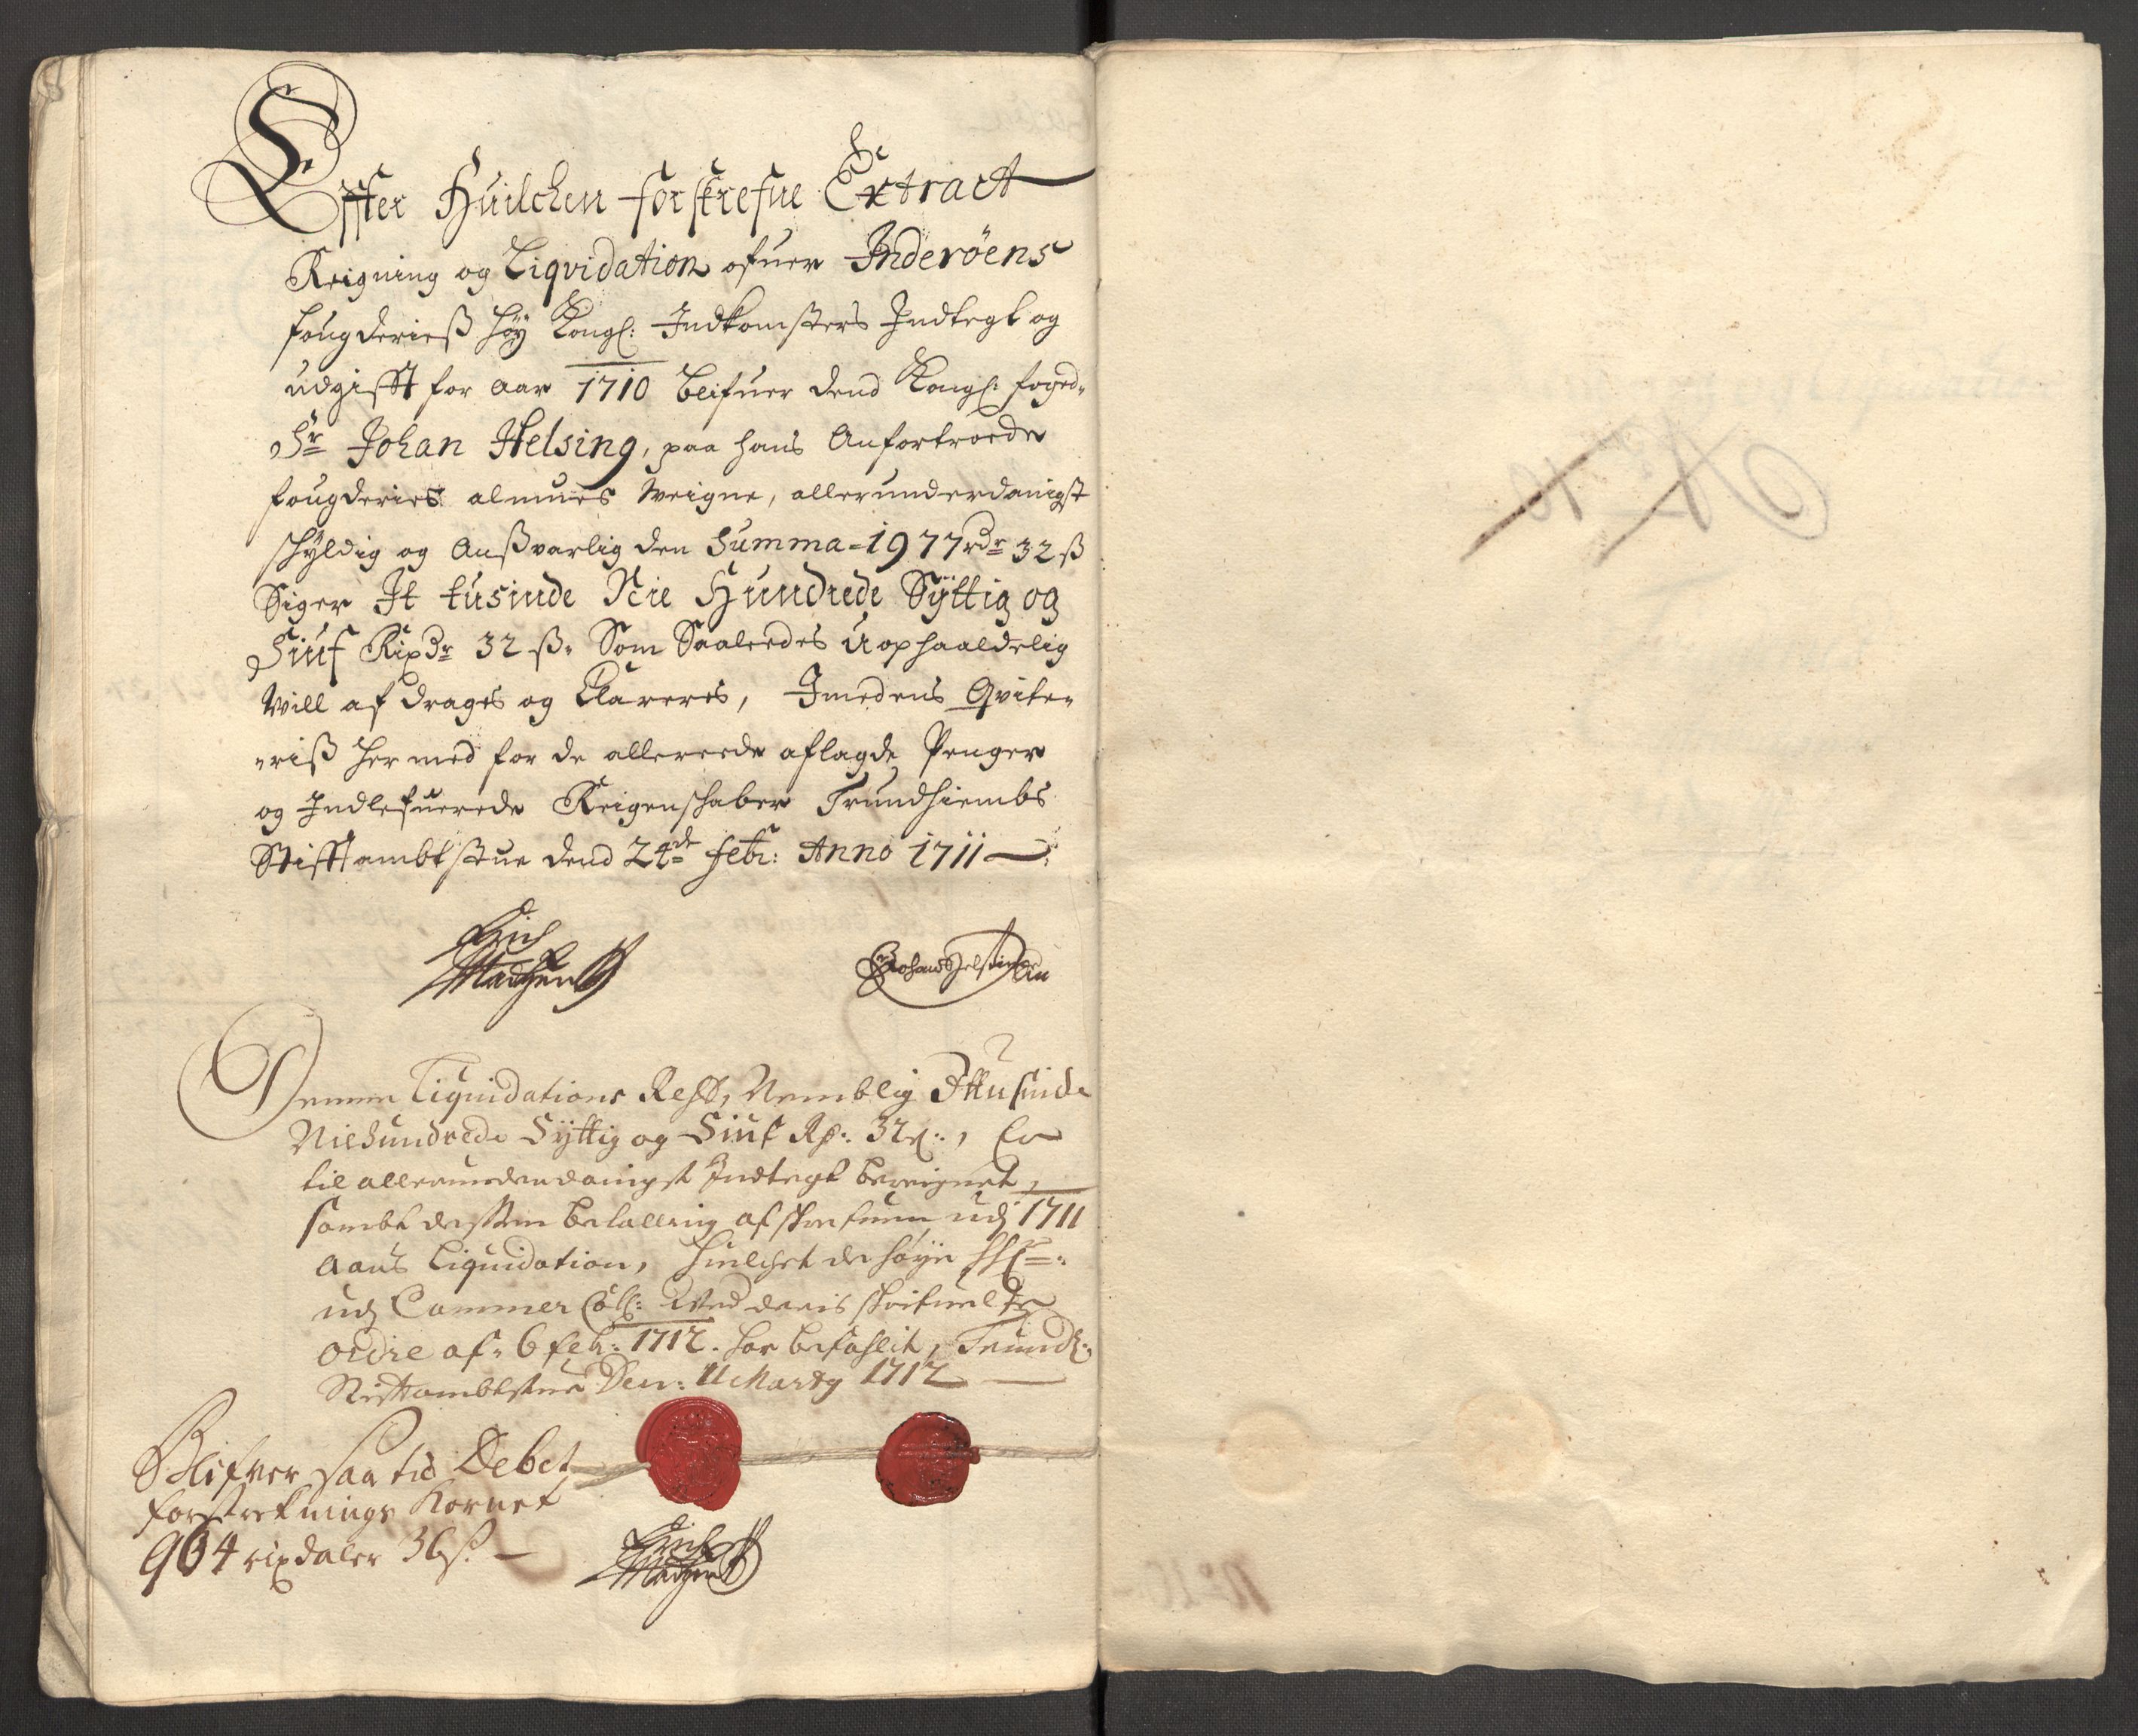 Effter Huilchen forskrefne Extract
Reigning og Liqvidation ofuer Inderöens
fougderieß höy Kongl: Indkomsters Indtegt og
udgifft for aar 1710 blifuer dend Kongl: foged-
Sr Johan Helsing, paa hans Anfortroede
fougderies almues weigne, allerunderdanigst
schyldig og Anßvarlig den Summa = 1977 rdr 32 ß
Siger It tusinde Nie Hundrede Syttig og
Siuf Rixdr 32 ß. Som Saaledes Uophaaldelig
will afdrages og Clareres, Imedens Qvite-
-riß her med for de allereede aflagde Penger
og Indlefuerede Reigenschaber Trundhiembs
Stifftambtstue dend 24de febr: Anno 1711
Erich
Madhsen
Johan Helsing
Denne Liquidations Rest, Nemblig Ittusinde
Niehundrede Syttig og Siuf Rd: 32 ß:, Er
til allerunderdanigst Indtegt bereignet,
sambt dessen betalling afskrefuen udj 1711
aars Liquidation, huilchet de höye HHr:
udj Cammer Coll: Wed deris skriftuelige
ordre af: 6 febr: 1712. har befahlit, Trundh:
Stifftambtstue Den: 11 Marty 1712
Blifver saa til Debet
forstreknings Kornet
904 rixdaler 36 ß.
Erich
Madhsen
No 10